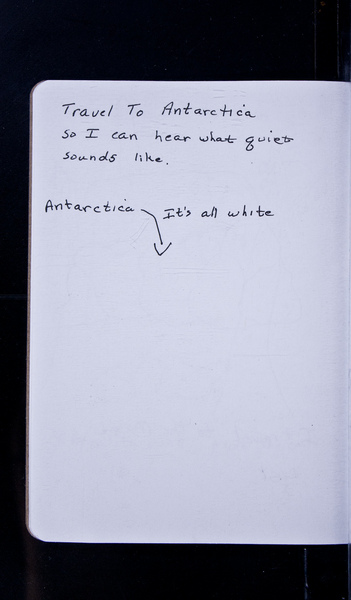 Travel To Antarctica
so I can hear what quiet
sounds like.
Antarctica It's all white